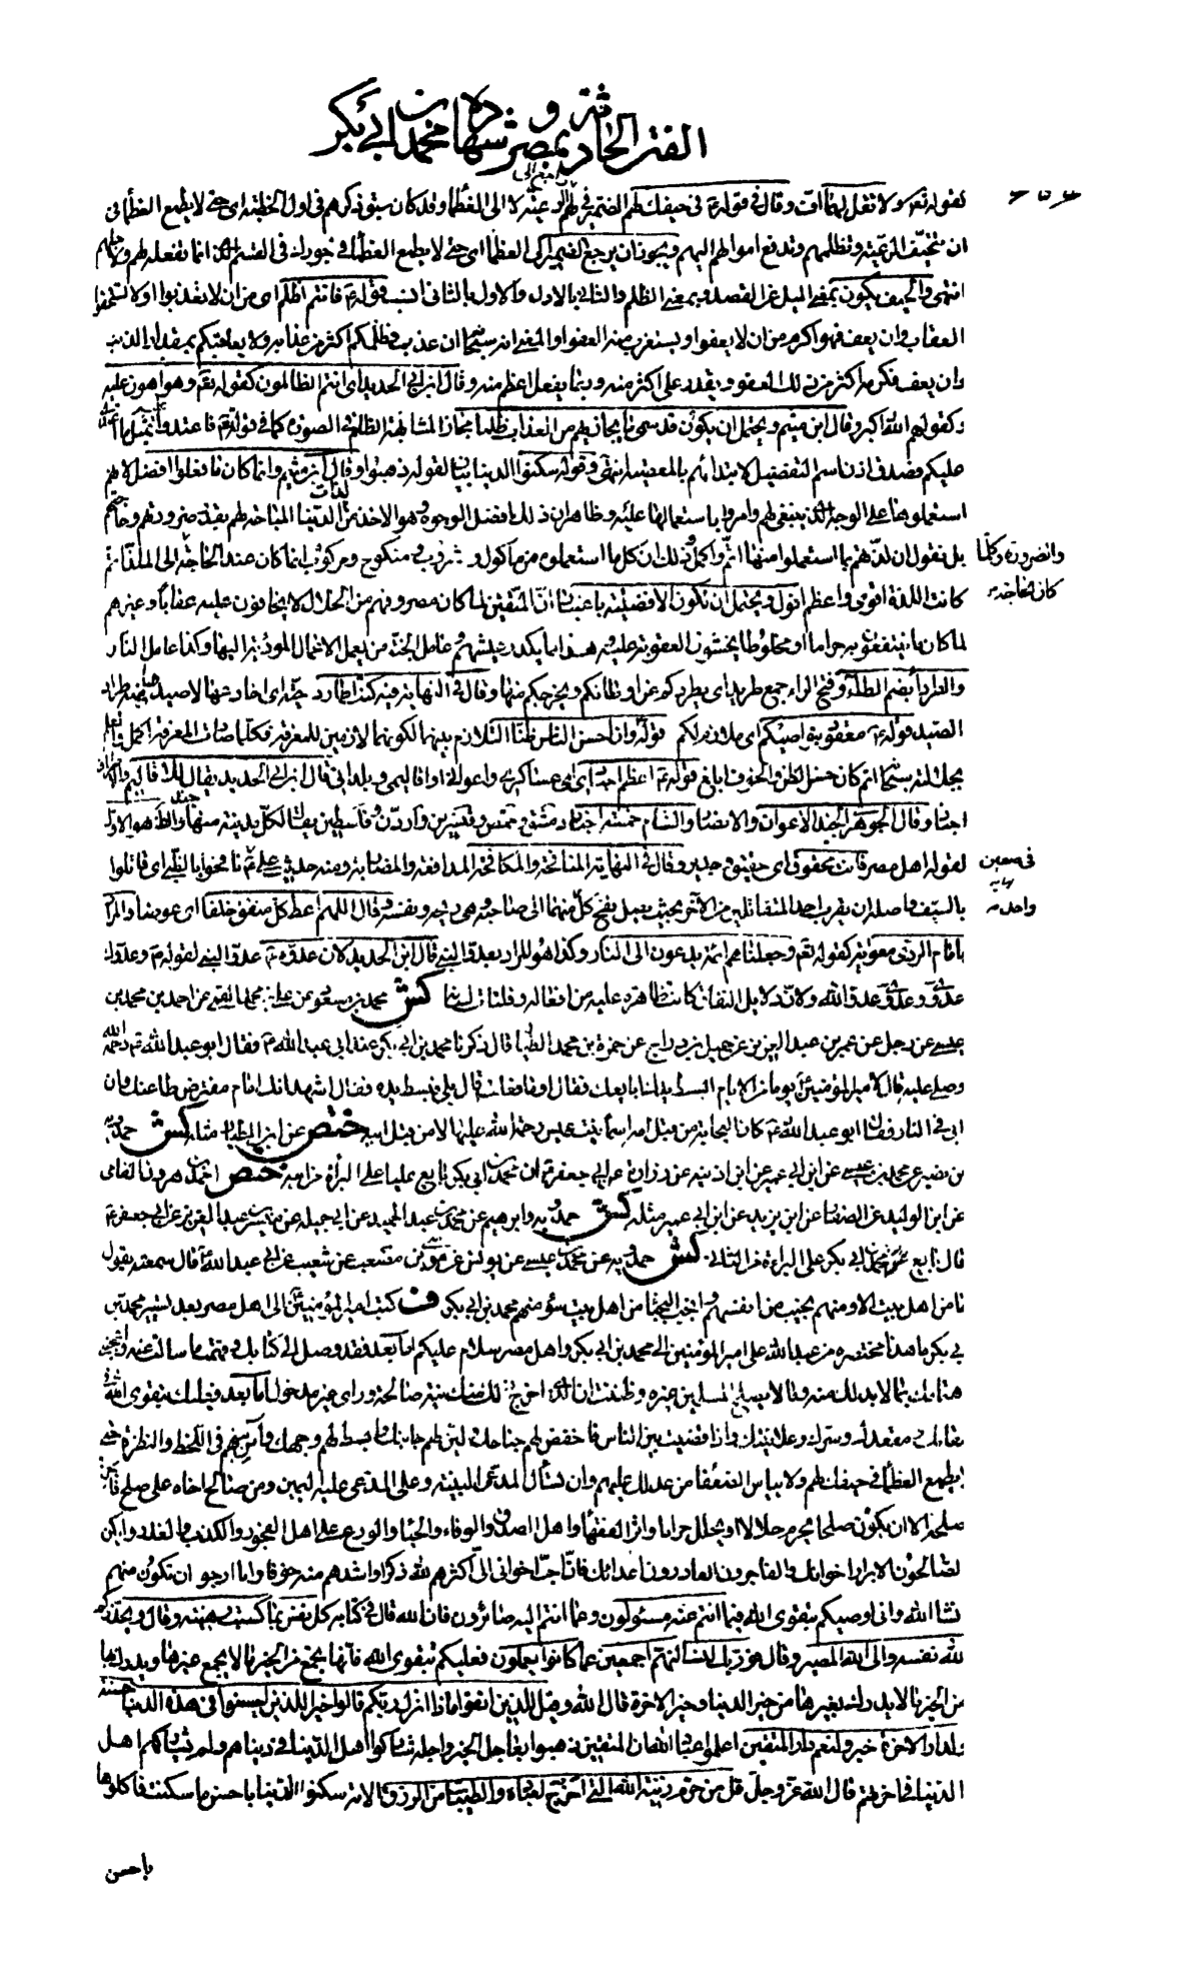 الفتن الحادثة بمصر و شهادة محمد بن ابي بكر
لقوله تعالى ولا تقل لهما اف وقال في قوله ع في حيفك لهم الضمير في لهم الى الرعية لا الى العظماء وقد كان سبق ذكرهم في اول الخطبة اي حتى لا يطمع العظماء في
ان تتحيف الرعية وتظلمهم وتدفع اموالهم اليهم ويجوز ان يرجع الضمير الى العظماء اي حتى لا يطمع العظماء في جورك في القسم الذي انما تفعله لهم ولاجلهم
انتهى والحيف يكون بمعنى الميل عن القصد وبمعنى الظلم والثاني بالاول والاول بالثاني انسب قوله ع فانتم اظلم اي من ان لا تعذبوا او لا تستحقوا
العقاب وان يعف فهو اكرم من ان لا يعفو او يستغرب منه العفو او المعنى انه سبحانه ان عذب فظلمكم اكثر من عذابه ولا يعاقبكم بمقدار الذنب
وان يعف فكرمه اكثر من ذلك العفو ويقدر على اكثر منه وربما يفعل اعظم منه وقال ابن ابي الحديد اي انتم الظالمون كقوله تعالى وهو اهون عليه
وكقولهم الله اكبر وقال ابن ميثم ويحتمل ان يكون قد سمى ما يجازيهم من العذاب ظلما مجازا لمشابهة الظلم في الصورة كما في قوله تعالى فاعتدوا عليه بمثل ما اعتدى
عليكم فصدق اذن اسم التفضيل لابتدائهم بالمعصية انتهى وقوله سكنوا الدنيا بيان لقوله ذهبوا وقال ابن ميثم وانما كان ما فعلوا افضل لانهم
استعملوها على الوجه الذي ينبغي لهم وامروا باستعمالها عليه وظاهر ان ذلك افضل الوجوه وهو الاخذ من لذات الدنيا المباحة لهم بقدر ضرورتهم وحاجتهم
بل نقول ان لذتهم بما استعملوا منها اتم واكمل وذلك ان كل ما استعملوه من مأكول ومشروب ومنكوح ومركوب انما كان عند الحاجة اليه
والضرورة وكلما
كان الحاجة
كانت اللذة اقوى واعظم اقول ويحتمل ان تكون الافضلية باعتبار ان المتقين لما كان مصروفهم من الحلال لا يخافون عليه عقابا وغيرهم
لما كان ما ينتفعون به حراما او مخلوطا يخشون العقوبة عليه وهذا مما يكدر عيشهم وعامل الجنة من يعمل الاعمال المؤدية اليها وكذا عامل النار
والطرداء بضم الطاء وفتح الراء جمع طريد اي يطردكم عن اوطانكم ويخرجكم منها وقال في النهاية فيه كنت اطارد حية اي اخادعها لاصيدها ومنه طراد
الصيد قوله ع معقود بنواصيكم اي ملازم لكم قوله وان احسن الناس ظنا التلازم بينهما لكونهما لازمين للمعرفة فكلما صارت المعرفة اكمل والعلم
بجلالته سبحانه اتم كان حسن الظن والخوف ابلغ قوله ع اعظم اجنادي اي عساكري واعواني او اقاليمي وبلداني قال ابن ابي الحديد يقال للاقاليم والاطراف
اجناد وقال الجوهري الجند الاعوان والانصار والشام خمسة اجناد دمشق وحمص وقنسرين واردن وفلسطين يقال لكل مدينة منها جند والظاهر هو الاول
لقوله اهل مصر فانت محقوق اي حقيق وجدير وقال في النهاية المنافحة والمكافحة المدافعة والمضاربة ومنه حديث علي ع نافحوا بالظبى اي قاتلوا
في صفين
بالسيف واصله ان يقرب احد المتقاتلين من الآخر بحيث يصل نفح كل منهما الى صاحبه وهي ريحه ونفسه وقال اللهم اعط كل منفق خلفا اي عوضا والمراد
واحد منه
بامام الردى معوية كقوله تعالى وجعلناهم ائمة يدعون الى النار وكذا هو المراد بعدو النبي قال ابن ابي الحديد لان عدوه ع عدو النبي لقوله ع وعدوك
عدوي وعدوي عدو الله ولان دلايل النفاق كانت ظاهرة عليه من افعاله وفلتات لسانه كش محمد بن مسعود عن علي بن محمد القمي عن احمد بن محمد بن
عيسى عن رجل عن عمر بن عبد العزيز عن جميل بن دراج عن حمزة بن محمد الطيار قال ذكرنا محمد بن ابي بكر عند ابي عبد الله ع فقال ابو عبد الله ع رحمه الله
وصلى عليه قال لامير المؤمنين ع يوما من الايام ابسط يدك ابايعك فقال او ما فعلت قال بلى فبسط يده فقال اشهد انك امام مفترض طاعتك وان
ابي في النار فقال ابو عبد الله ع كان النجابة من قبل امه اسماء بنت عميس رحمة الله عليها لا من قبل ابيه ختص عن ابن الطيار مثله كش حمدويه
بن نصير عن محمد بن عيسى عن ابن ابي عمير عن ابن اذينة عن زرارة عن ابي جعفر ع ان محمد بن ابي بكر بايع عليا على البرائة من ابيه ختص احمد بن هرون الفامي
عن ابن الوليد عن الصفار عن ابن يزيد عن ابن ابي عمير مثله كش حمدويه وابرهيم عن محمد بن عبد الحميد عن ابي جميلة عن ميسر بن عبد العزيز عن ابي جعفر ع
قال بايع محمد بن ابي بكر على البراءة من الثاني كش حمدويه عن محمد بن عيسى عن يونس عن موسى بن مصعب عن شعيب عن ابي عبد الله ع قال سمعته يقول
ما من اهل بيت الا ومنهم نجيب من انفسهم وانجب النجباء من اهل بيت سوء منهم محمد بن ابي بكر ف كتب امير المؤمنين ع الى اهل مصر بعد تسيير محمد بن
ابي بكر ما هذا مختصره من عبد الله علي امير المؤمنين الى محمد بن ابي بكر واهل مصر سلام عليكم اما بعد فقد وصل الي كتابك وفهمت ما سالت عنه واعجبني
اهتمامك بما لا بد لك منه وما لا يصلح المسلمين غيره وظننت ان الذي اخرج ذلك منك نية صالحة وراي غير مدخول اما بعد فعليك بتقوى الله
في مقامك ومقعدك وسرك وعلانيتك واذا قضيت بين الناس فاخفض لهم جناحك ولين لهم جانبك وابسط لهم وجهك وآس بينهم في اللحظ والنظرة حتى
لا يطمع العظماء في حيفك لهم ولا ييأس الضعفاء من عدلك عليهم وان تسأل المدعي البينة وعلى المدعى عليه اليمين ومن صالح اخاه على صلح فاجز
صلحه الا ان يكون صلحا يحرم حلالا او يحلل حراما واثر الفقهاء واهل الصدق والوفاء والحياء والورع على اهل الفجور والكذب والغدر وليكن
الصالحون الابرار اخوانك والفاجرون الغادرون اعداءك فان احب اخواني الي اكثرهم لله ذكرا واشدهم منه خوفا وانا ارجو ان تكون منهم
ان شاء الله واني اوصيكم بتقوى الله فيما انتم عنه مسئولون وعما انتم اليه صائرون فان الله قال في كتابه كل نفس بما كسبت رهينة وقال ويحذركم
الله نفسه والى الله المصير وقال فوربك لنسألنهم اجمعين عما كانوا يعملون فعليكم بتقوى الله فانها تجمع من الخير ما لا يجمع غيرها ويدرك بها
من الخير ما لا يدرك بغيرها من خير الدنيا وخير الاخرة قال الله وقيل للذين اتقوا ماذا انزل ربكم قالوا خيرا للذين احسنوا في هذه الدنيا حسنة
ولدار الاخرة خير ولنعم دار المتقين اعلموا عباد الله ان المتقين ذهبوا بعاجل الخير واجله شاركوا اهل الدنيا في دنياهم ولم يشاركهم اهل
الدنيا في اخرتهم قال الله عز وجل قل من حرم زينة الله التي اخرج لعباده والطيبات من الرزق الاية سكنوا الدنيا باحسن ما سكنت فاكلوها
باحسن